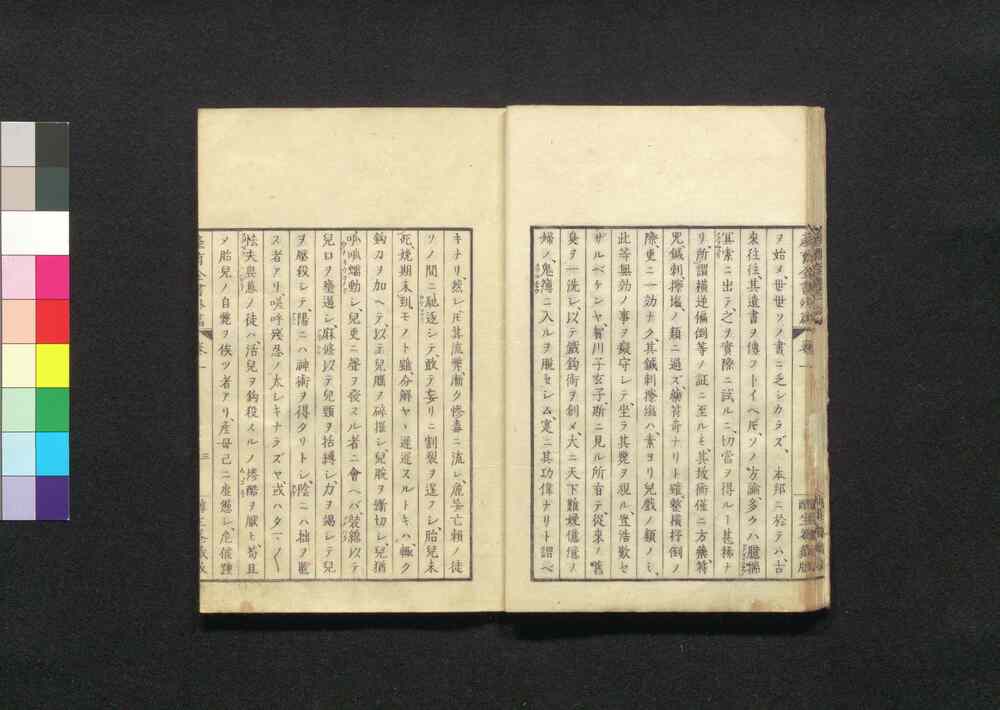 ヲ始メ、世世ソノ書ニ乏シカラズ、本邦ニ於テハ、古
來往往、其遺書ヲ傳フトイヘ𪜈、ソノ方論多クハ臆揣
ニ出テ、之ヲ實際ニ試ルニ、切當ヲ得ルー甚稀ナ
リ、所謂横逆偏倒等ノ証ニ至ルモ、其救術僅ニ方藥符
咒鍼刺擦塩ノ類ニ過ズ、藥符奇ナリト雖、整横抒倒ノ
際、更ニ一効ナク、其鍼刺擦塩ハ、素ヨリ兒戲ノ類ノミ、
此等無効ノ事ヲ窺守シテ、坐ラ其斃ヲ視ル、豈浩歎セ
ザルベケンヤ、賀川子玄子、斯ニ見ル所有テ、從來ノ舊
臭ヲ一洗シ、以テ鐵鈎術ヲ創メ、大ニ天下難娩億億ノ
婦ノ、鬼簿ニ入ルヲ脱セシム、寔ニ其功偉ナリト謂ベ
キナリ、然レ𪜈其流弊漸ク惨毒ニ流レ、麁妄亡頼ノ徒
ソノ間ニ馳逐シテ、敢テ妄リニ割裂ヲ逞フシ、胎兒未
死、娩期未到モノト雖、分解ヤヽ遲遲スルトキハ、輙ク
鈎刀ヲ加ヘテ、以テ兒軀ヲ碎摧シ、兒腕ヲ斷切シ、兒猶
呱呱蠕動シ、兒更ニ聲ヲ發スル者ニ會ヘバ、裝綿以テ
兒口ヲ壅遏シ、麻絛以テ兒頸ヲ括縛シ、力ヲ竭シテ兒
ヲ壓殺シテ、陽ニハ神術ヲ得タリトシ、陰ニハ拙ヲ匿
ス者アリ、嗚呼残忍ノ太シキナラズヤ、或ハタマ〱
怯夫與愚ノ徒ハ、活兒ヲ鈎殺スルノ惨酷ヲ厭ヒ、苟且
ヲ胎兒ノ自斃ヲ俟ツ者アリ、産母已ニ虚憊シ、
三